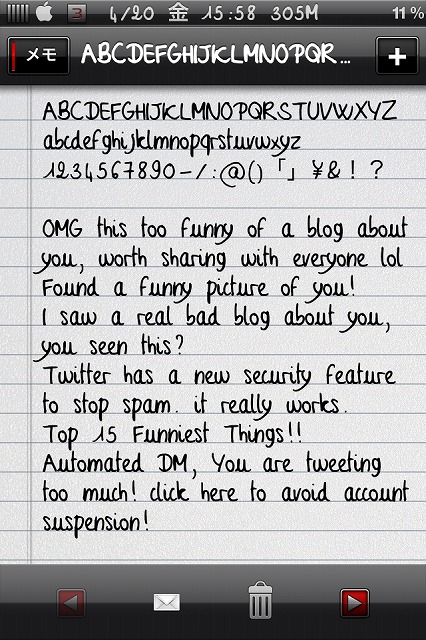 3 4/20 金 15:58 305M 11%
メモ ABCDEFGHIJKLMNOPQR...
ABCDEFGHIJKLMNOPQRSTUVWXYZ
abcdefghijklmnopqrstuvwxyz
1234567890-/:@()「」¥&!?
OMG this too funny of a blog about
you, worth sharing with everyone lol
Found a funny picture of you!
I saw a real bad blog about you,
you seen this?
Twitter has a new security feature
to stop spam. it really works.
Top 15 Funniest Things!!
Automated DM, You are tweeting
too much! click here to avoid account
suspension!